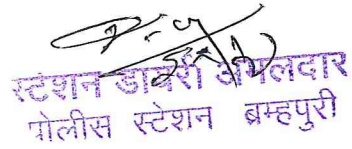 स्टेशन डायरी अंमलदार
पोलीस स्टेशन ब्रम्हपुरी